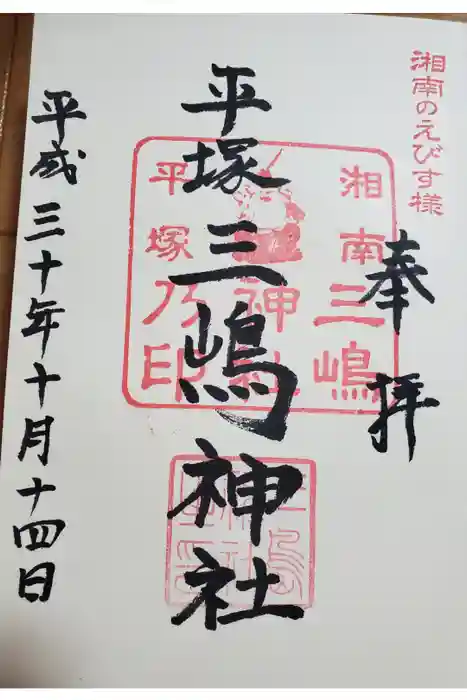 湘南のえびす様
奉拝
平塚三嶋神社
湘南三嶋
神社
平塚乃印
平成三十年十月十四日